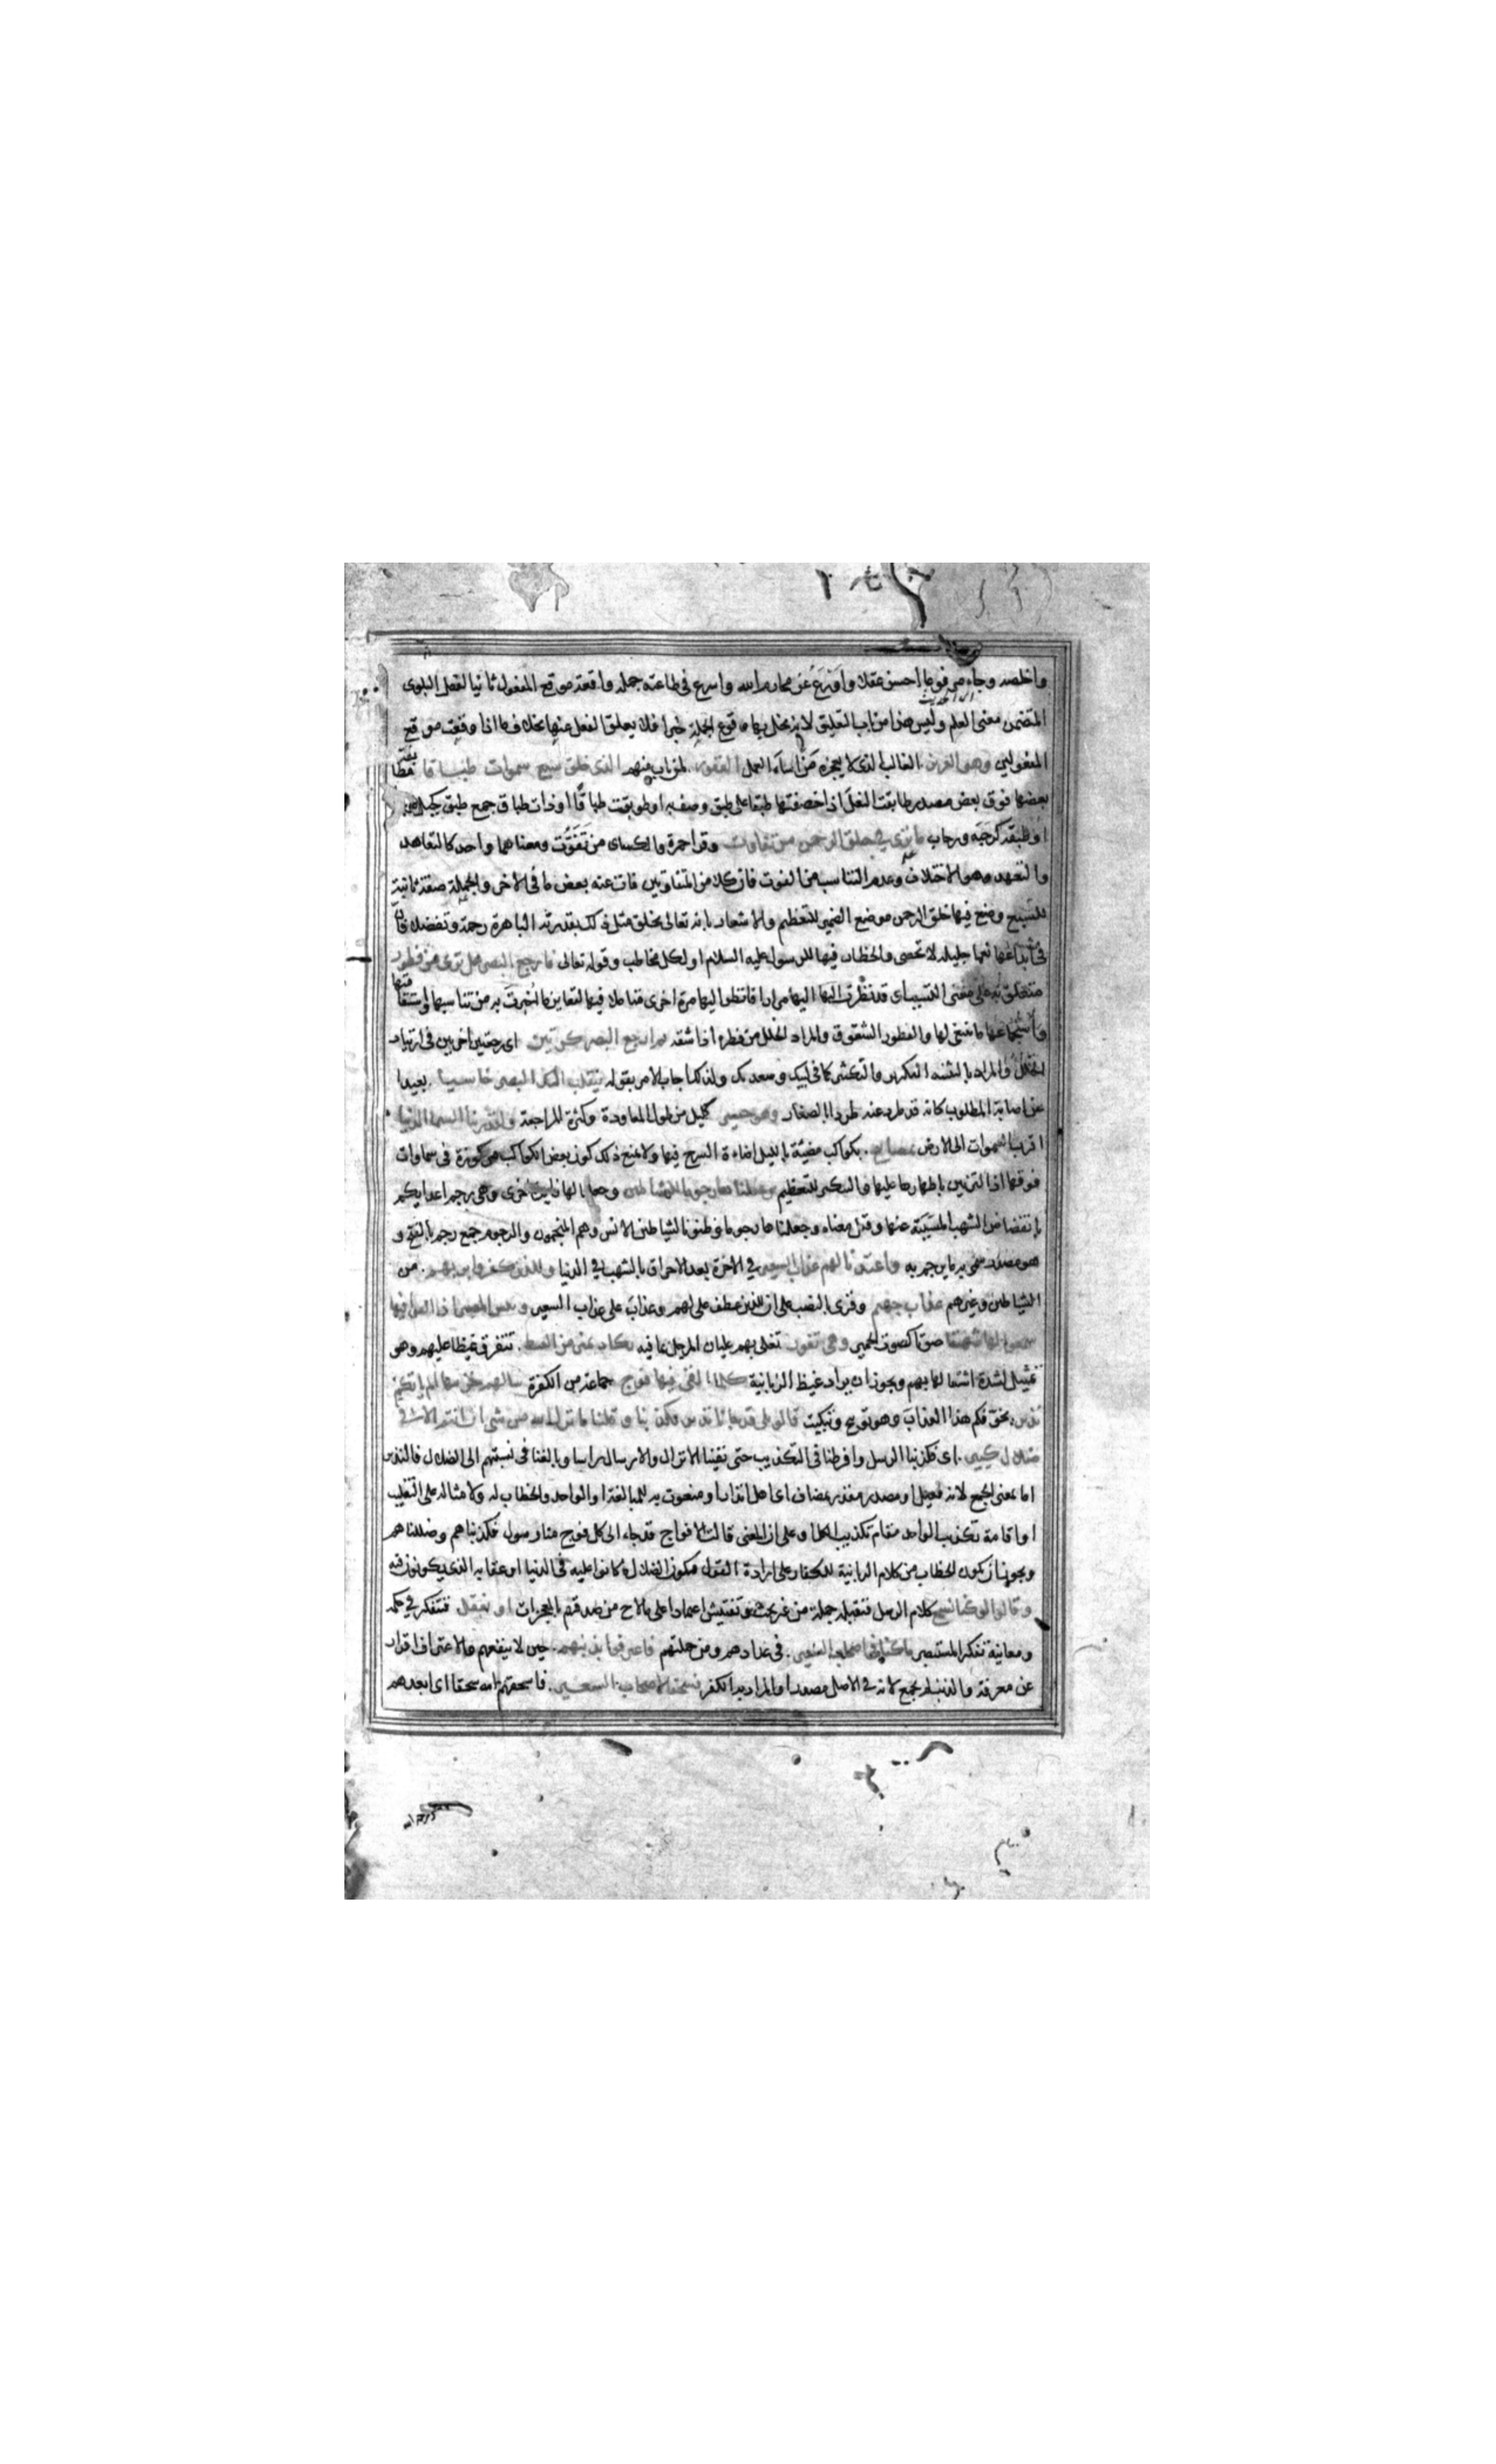 واخلصه وجاء مرفوعا احسن عقلا واورع عن محارم الله واسرع في طاعته جملة واقعة موقع المفعول ثانيا لفعل البلوى
المتضمن معنى العلم وليس هذا من باب التعليق لانه يخل به وقوع الجملة خبرا فلا يعلق الفعل عنها بخلاف ما اذا وقعت موقع
المفعولين وهو العزيز الغالب الذي لا يعجزه من اساء العمل الغفور لمن تاب منهم الذي خلق سبع سموات طباقا مطابقة
بعضها فوق بعض مصدر طابقت النعل اذا خصفتها طبقا على طبق وصف به او طوبقت طباقا او ذات طباق جمع طبق كجبل
او طبقة كرحبة ورحاب ما ترى في خلق الرحمن من تفاوت وقرا حمزة والكساى من تفوت ومعناهما واحد كالتعاهد
والتعهد وهو الاختلاف وعدم التناسب من الفوت فان كلا من المتفاوتين فات عنه بعض ما في الاخر والجملة صفة ثانية
للسبع وضع فيها خلق الرحمن موضع الضمير للتعظيم والاشعار بانه تعالى يخلق مثل ذلك بقدرته الباهرة رحمة وتفضلا وان
في ابداعها نعما جليلة لا تحصى والخطاب فيها للرسول عليه السلام او لكل مخاطب وقوله تعالى فارجع البصر هل ترى من فطور
متعلق به على معنى التسبب اى قد نظرت اليها مرارا فانظر اليها مرة اخرى متاملا فيها لتعاين ما اخبرت به من تناسبها واستقامتها
واستجماعها ما ينبغي لها والفطور الشقوق والمراد الخلل من فطره اذا شقه ثم ارجع البصر كرتين اى رجعتين اخريين في ارتياد
الخلل والمراد بالتثنية التكرير والتكثير كما في لبيك وسعديك ولذلك اجاب الامر بقوله ينقلب اليك البصر خاسيا بعيدا
عن اصابة المطلوب كانه قد طرد عنه طردا بالصغار وهو حسير كليل من طول المعاودة وكثرة المراجعة ولقد زينا السماء الدنيا
اقرب السموات الى الارض بمصابيح بكواكب مضيئة بالليل اضاءة السرج فيها ولا يمنع ذلك كون بعض الكواكب مركوزة في سماوات
فوقها اذ التزيين باظهارها عليها والتنكير للتعظيم وجعلناها رجوما للشياطين وجعلنا لها فايدة اخرى وهي رجم اعدايكم
بانقضاض الشهب المسببة عنها وقيل معناه وجعلناها رجوما وظنونا لشياطين الانس وهم المنجمون والرجوم جمع رجم بالفتح و
هو مصدر سمى به ما يرجم به واعتدنا لهم عذاب السعير في الاخرة بعد الاحراق بالشهب في الدنيا وللذين كفروا بربهم من
الشياطين وغيرهم عذاب جهنم وقرى بالنصب على ان للذين عطف على لهم وعذاب على عذاب السعير وبئس المصير اذا القوا فيها
سمعوا لها شهيقا صوتا كصوت الحمير وهي تفور تغلى بهم غليان المرجل بما فيه تكاد تميز من الغيظ تتفرق غيظا عليهم وهو
تمثيل لشدة اشتعالها بهم ويجوز ان يراد غيظ الزبانية كلما القى فيها فوج جماعة من الكفرة سالهم خزنتها الم ياتكم
نذير يخوفكم هذا العذاب وهو توبيخ وتبكيت قالوا بلى قد جاءنا نذير فكذبنا وقلنا ما نزل الله من شى ان انتم الا في
ضلال كبير اى فكذبنا الرسل وافرطنا في التكذيب حتى نفينا الانزال والارسال راسا وبالغنا في نسبتهم الى الضلال فالنذير
اما بمعنى الجمع لانه فعيل او مصدر مقدر بمضاف اى اهل انذار او منعوت به للمبالغة او الواحد والخطاب له ولامثاله على التغليب
او اقامة تكذيب الواحد مقام تكذيب الكل او على ان المعنى قالت الافواج قد جاء الى كل فوج منا رسول فكذبناهم وضللناهم
ويجوز ان يكون الخطاب من كلام الزبانية للكفار على ارادة القول فيكون الضلال ما كانوا عليه في الدنيا او عقابه الذي يكونون فيه
وقالوا لو كنا نسمع كلام الرسل فنقبله جملة من غير بحث وتفتيش اعتمادا على ما لاح من صدقهم بالمعجزات او نعقل فنتفكر في حكمه
ومعانيه تفكر المستبصرين ما كنا في اصحاب السعير في عدادهم ومن جملتهم فاعترفوا بذنبهم حين لا ينفعهم والاعتراف اقرار
عن معرفة والذنب لم يجمع لانه في الاصل مصدر او المراد به الكفر فسحقا لاصحاب السعير فاسحقهم الله سحقا اى ابعدهم